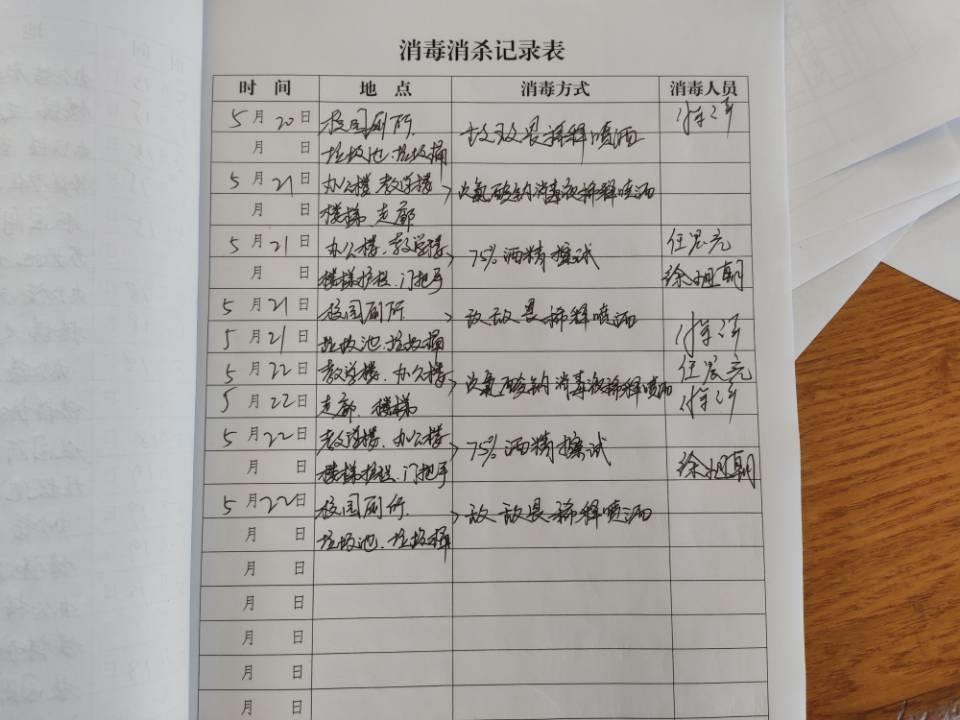 消毒消杀记录表
时 间 地 点 消毒方式 消毒人员
5月20日 校园厕所
敌敌畏稀释喷洒
月 日 垃圾池、垃圾桶
5月21日 办公楼 教学楼
次氯酸钠消毒液稀释喷洒
月 日 楼梯、走廊
5月21日 办公楼、教学楼
75%酒精擦试
月 日 楼梯护栏、门把手
5月21日 校园厕所
敌敌畏稀释喷洒
5月21日 垃圾池、垃圾桶
5月22日 教学楼、办公楼
次氯酸钠消毒液稀释喷洒
5月22日 走廊、楼梯
5月22日 教学楼、办公楼
75%酒精擦试
月 日 楼梯护栏、门把手
5月22日 校园厕所
敌敌畏稀释喷洒
月 日 垃圾池、垃圾桶
月 日
月 日
月 日
月 日
月 日